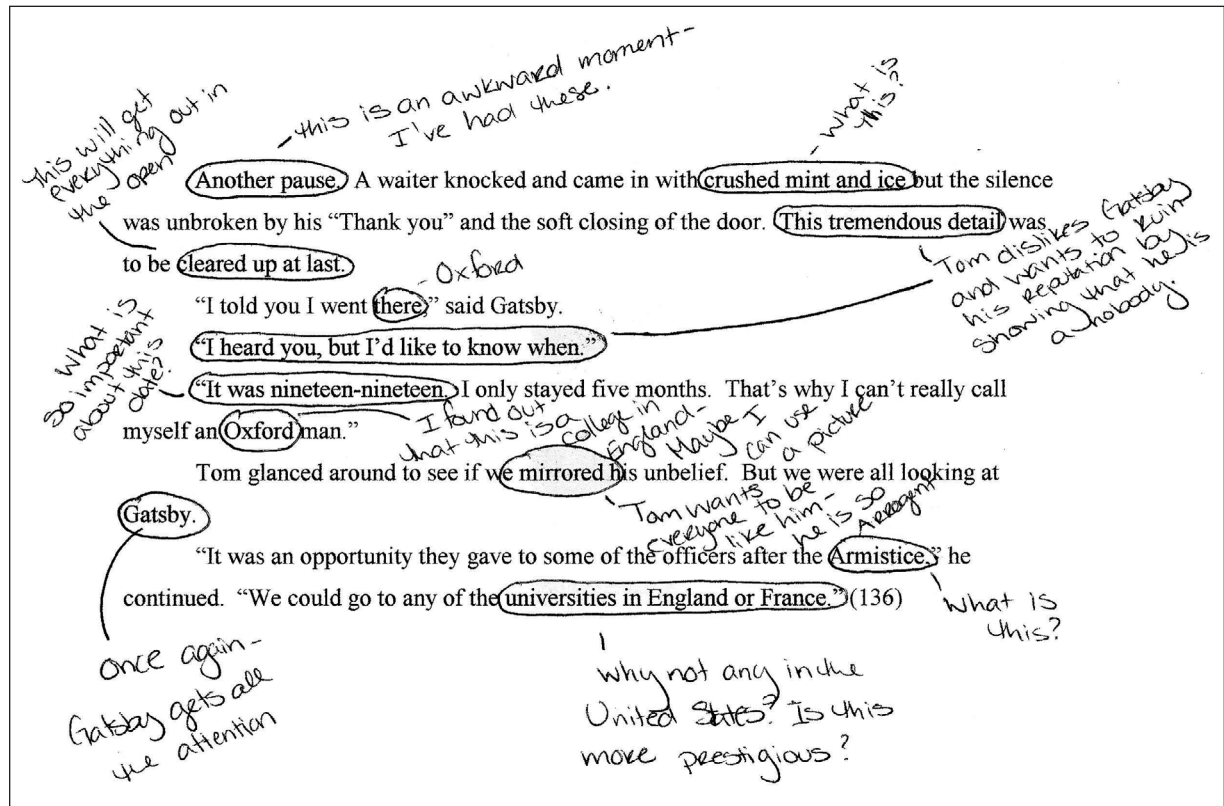 this is an awkward moment-
I've had these.
- what is
this?
This will get
everything out in
the open
Another pause. A waiter knocked and came in with crushed mint and ice but the silence
was unbroken by his “Thank you” and the soft closing of the door. This tremendous detail was
to be cleared up at last.
Tom dislikes Gatsby
and wants to ruin
his reputation by
showing that he is
a nobody.
- Oxford
“I told you I went there,” said Gatsby.
“I heard you, but I’d like to know when.”
What is
so important
about this
date?
“It was nineteen-nineteen. I only stayed five months. That’s why I can’t really call
myself an Oxford man.”
I found out
that this is a
college in
England-
Maybe I
can use
a picture
Tom glanced around to see if we mirrored his unbelief. But we were all looking at
Gatsby.
Tom wants
everyone to be
like him-
he is so
Arrogent
“It was an opportunity they gave to some of the officers after the Armistice,” he
continued. “We could go to any of the universities in England or France.” (136)
what is
this?
once again-
Gatsby gets all
the attention
why not any in the
United States? Is this
more prestigious?